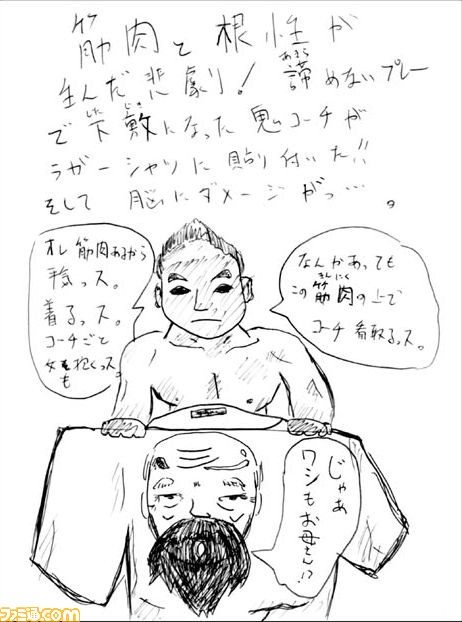 筋肉と根性が
生んだ悲劇!諦めないプレー
で下敷になった鬼コーチが
ラガーシャツに貼り付いた!!
そして脳にダメージがっ…。
オレ筋肉あるから
平気っス。
着るっス。
コーチごと
女を抱くっス
も
なんかあっても
この筋肉の上で
コーチ看取るっス。
じゃあ
ワシもお母さん!?
ファミ通.com